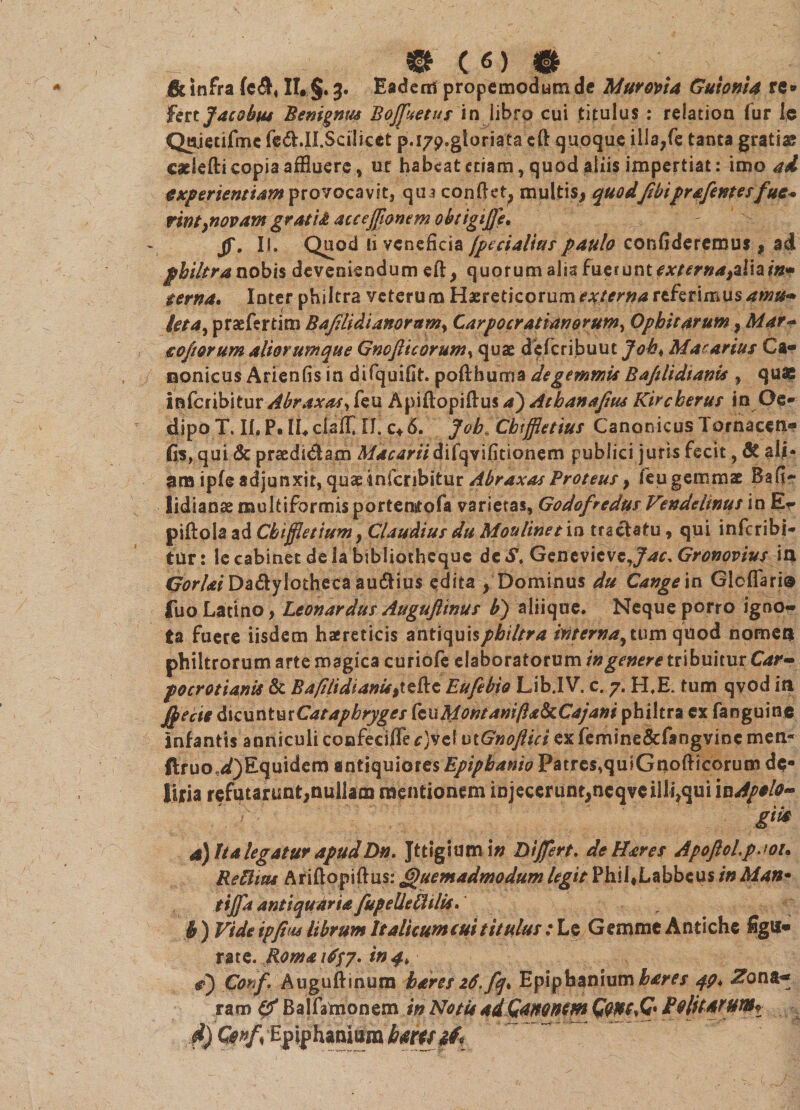 ❀ ( 6 ) ❀
& infra sect. II. §. 3. Eadem propemodum de Murovia Guionia re-
fert Jacobus Benignus Bossuetus in libro cui titulus : relation sur le
Quietisme sect.II.Scilicet p.179.gloriata est quoque illa,se tanta gratiæ
cælesti copia affluere, ut habeat etiam, quod aliis impertiat: imo ad
experientiam provocavit, qua constet, multis, quod sibi præsentes fue-
rint, novam gratiæ accessionem obtigisse.
§. II. Quod si veneficia specialius paulo consideremus, ad
philtra nobis deveniendum est, quorum alia fuerunt externa, alia in-
terna. Inter philtra veterum Hæreticorum externa referimus amu-
leta, præsertim Basilidianorum, Carpocratianorum, Ophitarum, Mar-
cosiorum aliorumque Gnosticorum, quæ describuut Joh. Macarius Ca-
nonicus Ariensis in disquisit. posthuma de gemmis Basilidianis , quæ
inscribitur Abraxas, seu Apistopistus a) Athanasius Kircherus in Oe-
dipo T. II. P. II. class. II. c. 6. Joh. Chiffletius Canonicus Tornacen-
sis, qui & prædictam Macarii disqvisitionem publici juris fecit, & ali-
am ipse adjunxit, quæ inscribitur Abraxas Proteus, seu gemmæ Basi-
lidianæ multiformis portentosa varietas, Godofredus Vendelinus in E-
pistola ad Chiffletium, Claudius du Moulinet in tractatu, qui inscribi-
tur: le cabinet de la bibliotheque de S. Genevieve, Jac. Gronovius in
Gorlæi Dactylotheca auctius edita , Dominus du Cange in Glossario
suo Latino, Leonardus Augustinus b) aliique. Neque porro igno-
ta fuere iisdem hæreticis antiquis philtra interna, tum quod nomen
philtrorum arte magica curiose elaboratorum in genere tribuitur Car-
pocrotianis & Basilidianis, teste Eusebio Lib.IV. c. 7. H.E. tum qvod in
specie dicuntur Cataphryges seu Montanistæ & Cajani philtra ex sanguine
infantis anniculi confecisse c) vel ut Gnostici ex semine & sangvine men-
struo. d) Equidem antiquiores Epiphanio Patres, qui Gnosticorum de-
liria refutarunt, nullam mentionem injecerunt, neqve illi, qui in Apolo-
giis
a) Ita legatur apud Dn. Jttigium in Dissert. de Hæres Apostol. p. 101.
Rectius Aristopistus: Quemadmodum legit Phil. Labbeus in Man-
tissa antiquariæ supellectilis.
b) Vide ipsius librum Italicum cui titulus: Le Gemme Antiche figu-
rate. Roma 1657. in 4.
c) Conf. Augustinum hæres 26. sq. Epiphanium hæres 49. Zona-
ram & Balsamonem in Notis ad Canonem Conc. C. Politarum.
d) Conf. Epiphanium hæres 26.